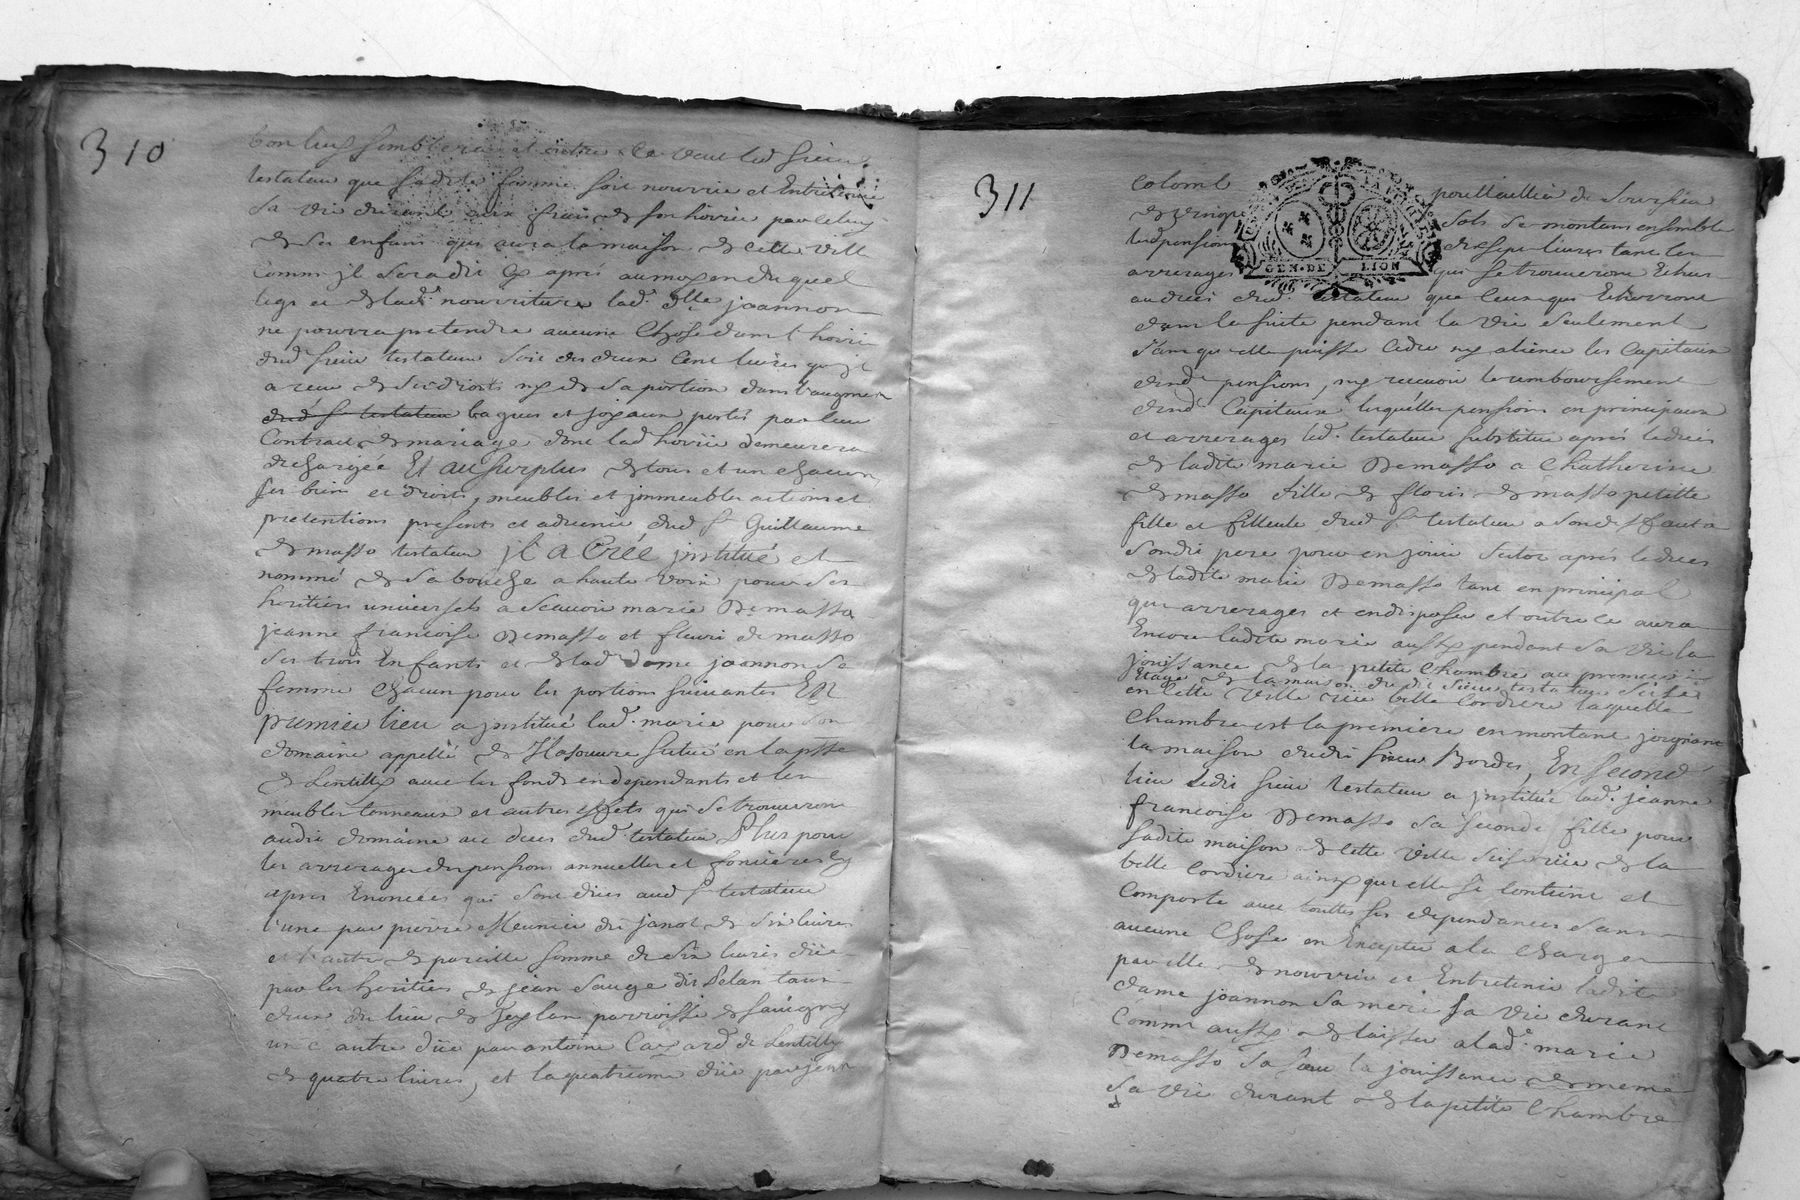 310
bon luy semblera et outre ce veut led sieur
testateur que sadite femme soit nourrie et Entretenue
sa vie durant aux frais de son hoirie par celuy
de ses enfans qui aura la maison de cette ville
comme jl sera dit cy aprés au moyen duquel
legs et de lad. nourriture lad. dlle joannon
ne pourra pretendre aucune chose dans l hoirie
dud sieur testateur soit des deux cent livres qu jl
a receu de ses droits ny de sa portion dans l'augment
dud sr testateur bagues et joyaux portés par leur
Contract de mariage dont lad hoirie demeurera
dechargée Et au surplus de tous et un chacun
ses biens et droits, meubles et jmmeubles actions et
pretentions presents et advenir dud sr Guillaume
de masso testateur jl a Créé jnstitué et
nommé de sa bouche a haute voix pour ses
heritiers universels a scavoir marie Demasso
jeanne francoise Demasso et fleuri de masso
ses trois Enfants et de lad dame joannon sa
femme chacun pour les portions suivantes En
premier lieu a jnstitué lad. marie pour son
domaine appellé de situé en la psse
de Lentilly avec les fonds en dependants et les
meubles tonneaux et autres effets qui se trouveront
audit domaine au deces dud. testateur Plus pour
les arrerages des pensions annuelles et foncieres cy
apres Enoncées qui sont dües aud sr testateur
l'une par pierre Meunier dit janot de six livres
et l'autre de pareille somme de six livres düe
par les heritiers de jean Sauge dit
du lieu de parroisse de savigny
une autre düe par antoine de Lentilly
de quatre livres, et la quatrieme düe par jean
311
colomb poullaillier de Sourcieu
de vingt sols se montans ensemble
lesd pensions dixsept livres tant les
arrerages qui se trouveront Echus
au deces dud. testateur que ceux qui Echerront
dans la suite pendant la vie seulement
sans qu elle puisse ceder ny aliener les capitaux
desd. pensions, ny recevoir le remboursement
desd. Capitaux lesquelles pensions en principaux
et arrerages led. testateur substitue aprés le deces
de ladite marie Demasso a Chatherine
de masso fille de fleuri de masso petitte
fille et filleule dud sr testateur a son deffaut a
sondit pere pour en jouir aprés le deces
de ladite marie Demasso tant en principal
que arrerages et en disposer et outre ce aura
Encore ladite marie aussy pendant sa vie la
jouissance de la petite chambre au premier
Etage de la maison du dit sieur testateur sise
en cette ville rüe belle Cordiere laquelle
chambre est la premiere en montant joignant
la maison dudit sieur Bordes, En second
lieu ledit sieur testateur a jnstitué lad. jeanne
francoise Demasso sa seconde fille pour
sadite maison de cette ville sise rüe de la
belle Cordiere ainsy que elle se contient et
comporte avec touttes ses dependances sans
aucune chose en Excepter a la charge
par elle de nourrir et Entretenir ladite
dame joannon sa mere sa vie durant
Comme aussy de laisser a lad. marie
Demasso sa soeur la jouissance de meme
sa vie durant de la petite chambre
GEN·DE LION